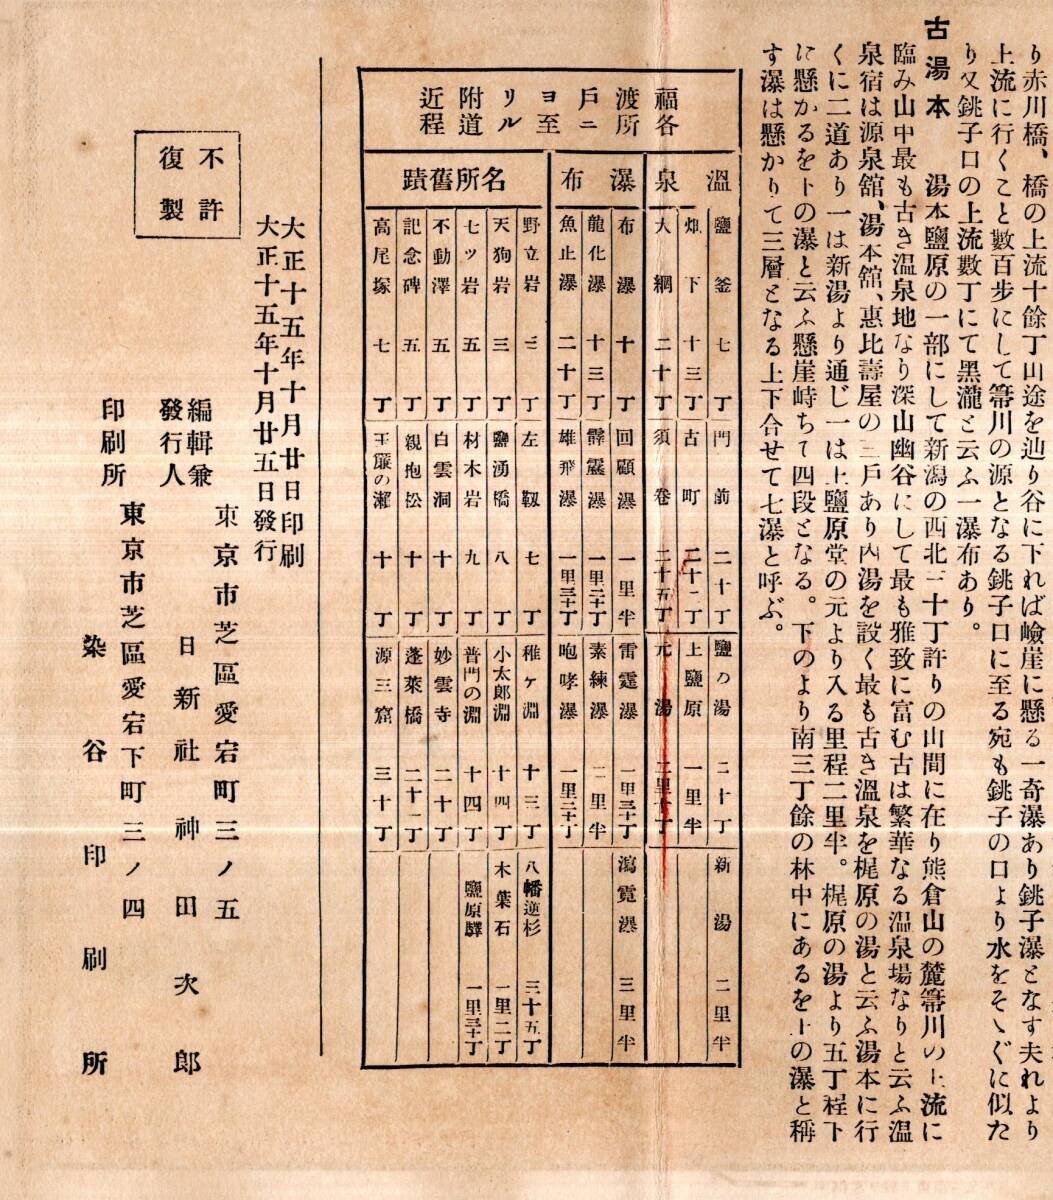 り赤川橋、橋の上流十餘丁山途を辿り谷に下れば嶮崖に懸る一奇瀑あり銚子瀑となす夫れより
上流に行くこと數百步にして箒川の源となる銚子口に至る宛も銚子の口より水をそゝぐに似た
り又銚子口の上流數丁にて黑瀧と云ふ一瀑布あり。
古湯本 湯本鹽原の一部にして新潟の西北三十丁許りの山間に在り熊倉山の麓箒川の上流に
臨み山中最も古き温泉地なり深山幽谷にして最も雅致に富む古は繁華なる温泉場なりと云ふ温
泉宿は源泉館、湯本舘、惠比壽屋の三戶あり內湯を設く最も古き溫泉を梶原の湯と云ふ湯本に行
くに二道あり一は新湯より通じ一は上鹽原堂の元より入る里程二里半。梶原の湯より五丁程下
に懸かるを下の瀑と云ふ懸崖峙ちて四段となる。下のより南三丁餘の林中にあるを上の瀑と稱
す瀑は懸かりて三層となる上下合せて七瀑と呼ぶ。
福渡戶ヨリ附近
各所ニ至ル道程
溫泉
鹽釜 七丁 門前 二十丁 鹽の湯 二十丁 新湯 二里半
畑下 十三丁 古町 二十二丁 上鹽原 一里半
大網 二十丁 須卷 二十五丁 元湯 二里十丁
瀑布
布瀑 十丁 回顧瀑 一里半 雷霆瀑 一里三十丁 瀉霓瀑 三里半
龍化瀑 十三丁 霹靂瀑 一里二十丁 素練瀑 二里半
魚止瀑 二十丁 雄飛瀑 一里三十丁 咆哮瀑 一里二十丁
名所舊蹟
野立岩 三丁 左靱 七丁 稚ケ淵 十三丁 八幡逆杉 三十五丁
天狗岩 三丁 鹽湧橋 八丁 小太郎淵 十四丁 木葉石 一里二丁
七ツ岩 五丁 材木岩 九丁 普門の淵 十四丁 鹽原驛 一里三十丁
不動澤 五丁 白雲洞 十丁 妙雲寺 二十丁
記念碑 五丁 親抱松 十丁 蓬萊橋 二十一丁
高尾塚 七丁 玉簾の瀨 十丁 源三窟 三十丁
大正十五年十月廿日印刷
大正十五年十月廿五日發行
不許
復製
編輯兼
發行人
東京市芝區愛宕町三ノ五
日新社 神田次郎
印刷所
東京市芝區愛宕下町三ノ四
染谷印刷所